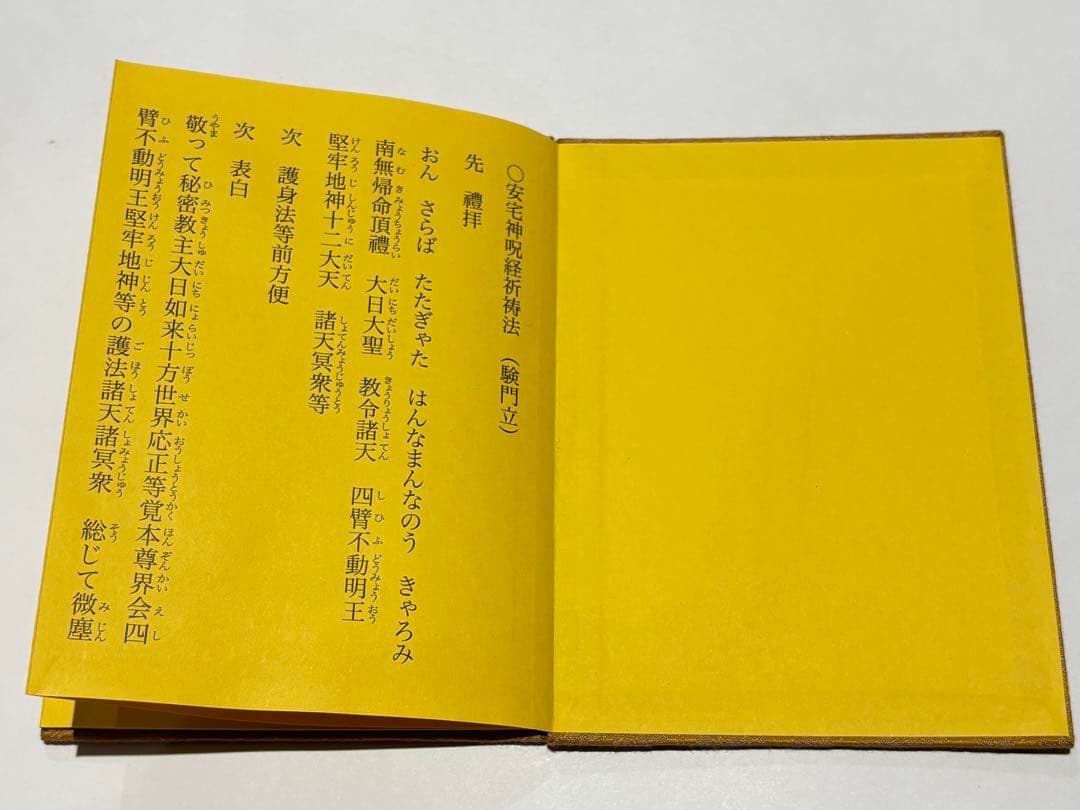 ○安宅神呪経祈祷法　（験門立）
先　禮拝
おん　さらば　たたぎゃた　はんなまんなのう　きゃろみ
南無帰命頂禮　大日大聖　教令諸天　四臂不動明王
堅牢地神十二大天　諸天冥衆等
次　護身法等前方便
次　表白
敬って秘密教主大日如来十方世界応正等覚本尊界会四
臂不動明王堅牢地神等の護法諸天諸冥衆　総じて微塵